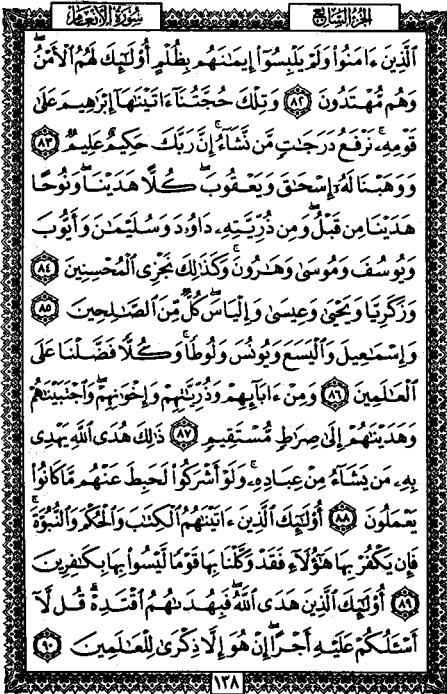 الجزء السابع
سورة الأنعام
ٱلَّذِينَ ءَامَنُوا۟ وَلَمْ يَلْبِسُوٓا۟ إِيمَـٰنَهُم بِظُلْمٍ أُو۟لَـٰٓئِكَ لَهُمُ ٱلْأَمْنُ ۖ
وَهُم مُّهْتَدُونَ ٨٢ وَتِلْكَ حُجَّتُنَآ ءَاتَيْنَـٰهَآ إِبْرَٰهِيمَ عَلَىٰ
قَوْمِهِۦ ۚ نَرْفَعُ دَرَجَـٰتٍ مَّن نَّشَآءُ ۗ إِنَّ رَبَّكَ حَكِيمٌ عَلِيمٌ ٨٣
وَوَهَبْنَا لَهُۥٓ إِسْحَـٰقَ وَيَعْقُوبَ ۚ كُلًّا هَدَيْنَا ۚ وَنُوحًا
هَدَيْنَا مِن قَبْلُ ۖ وَمِن ذُرِّيَّتِهِۦ دَاوُۥدَ وَسُلَيْمَـٰنَ وَأَيُّوبَ
وَيُوسُفَ وَمُوسَىٰ وَهَـٰرُونَ ۚ وَكَذَٰلِكَ نَجْزِى ٱلْمُحْسِنِينَ ٨٤
وَزَكَرِيَّا وَيَحْيَىٰ وَعِيسَىٰ وَإِلْيَاسَ ۖ كُلٌّ مِّنَ ٱلصَّـٰلِحِينَ ٨٥
وَإِسْمَـٰعِيلَ وَٱلْيَسَعَ وَيُونُسَ وَلُوطًا ۚ وَكُلًّا فَضَّلْنَا عَلَى
ٱلْعَـٰلَمِينَ ٨٦ وَمِنْ ءَابَآئِهِمْ وَذُرِّيَّـٰتِهِمْ وَإِخْوَٰنِهِمْ ۖ وَٱجْتَبَيْنَـٰهُمْ
وَهَدَيْنَـٰهُمْ إِلَىٰ صِرَٰطٍ مُّسْتَقِيمٍ ٨٧ ذَٰلِكَ هُدَى ٱللَّهِ يَهْدِى
بِهِۦ مَن يَشَآءُ مِنْ عِبَادِهِۦ ۚ وَلَوْ أَشْرَكُوا۟ لَحَبِطَ عَنْهُم مَّا كَانُوا۟
يَعْمَلُونَ ٨٨ أُو۟لَـٰٓئِكَ ٱلَّذِينَ ءَاتَيْنَـٰهُمُ ٱلْكِتَـٰبَ وَٱلْحُكْمَ وَٱلنُّبُوَّةَ ۚ
فَإِن يَكْفُرْ بِهَا هَـٰٓؤُلَآءِ فَقَدْ وَكَّلْنَا بِهَا قَوْمًا لَّيْسُوا۟ بِهَا بِكَـٰفِرِينَ
٨٩ أُو۟لَـٰٓئِكَ ٱلَّذِينَ هَدَى ٱللَّهُ ۖ فَبِهُدَىٰهُمُ ٱقْتَدِهْ ۗ قُل لَّآ
أَسْـَٔلُكُمْ عَلَيْهِ أَجْرًا ۖ إِنْ هُوَ إِلَّا ذِكْرَىٰ لِلْعَـٰلَمِينَ ٩٠
١٣٨